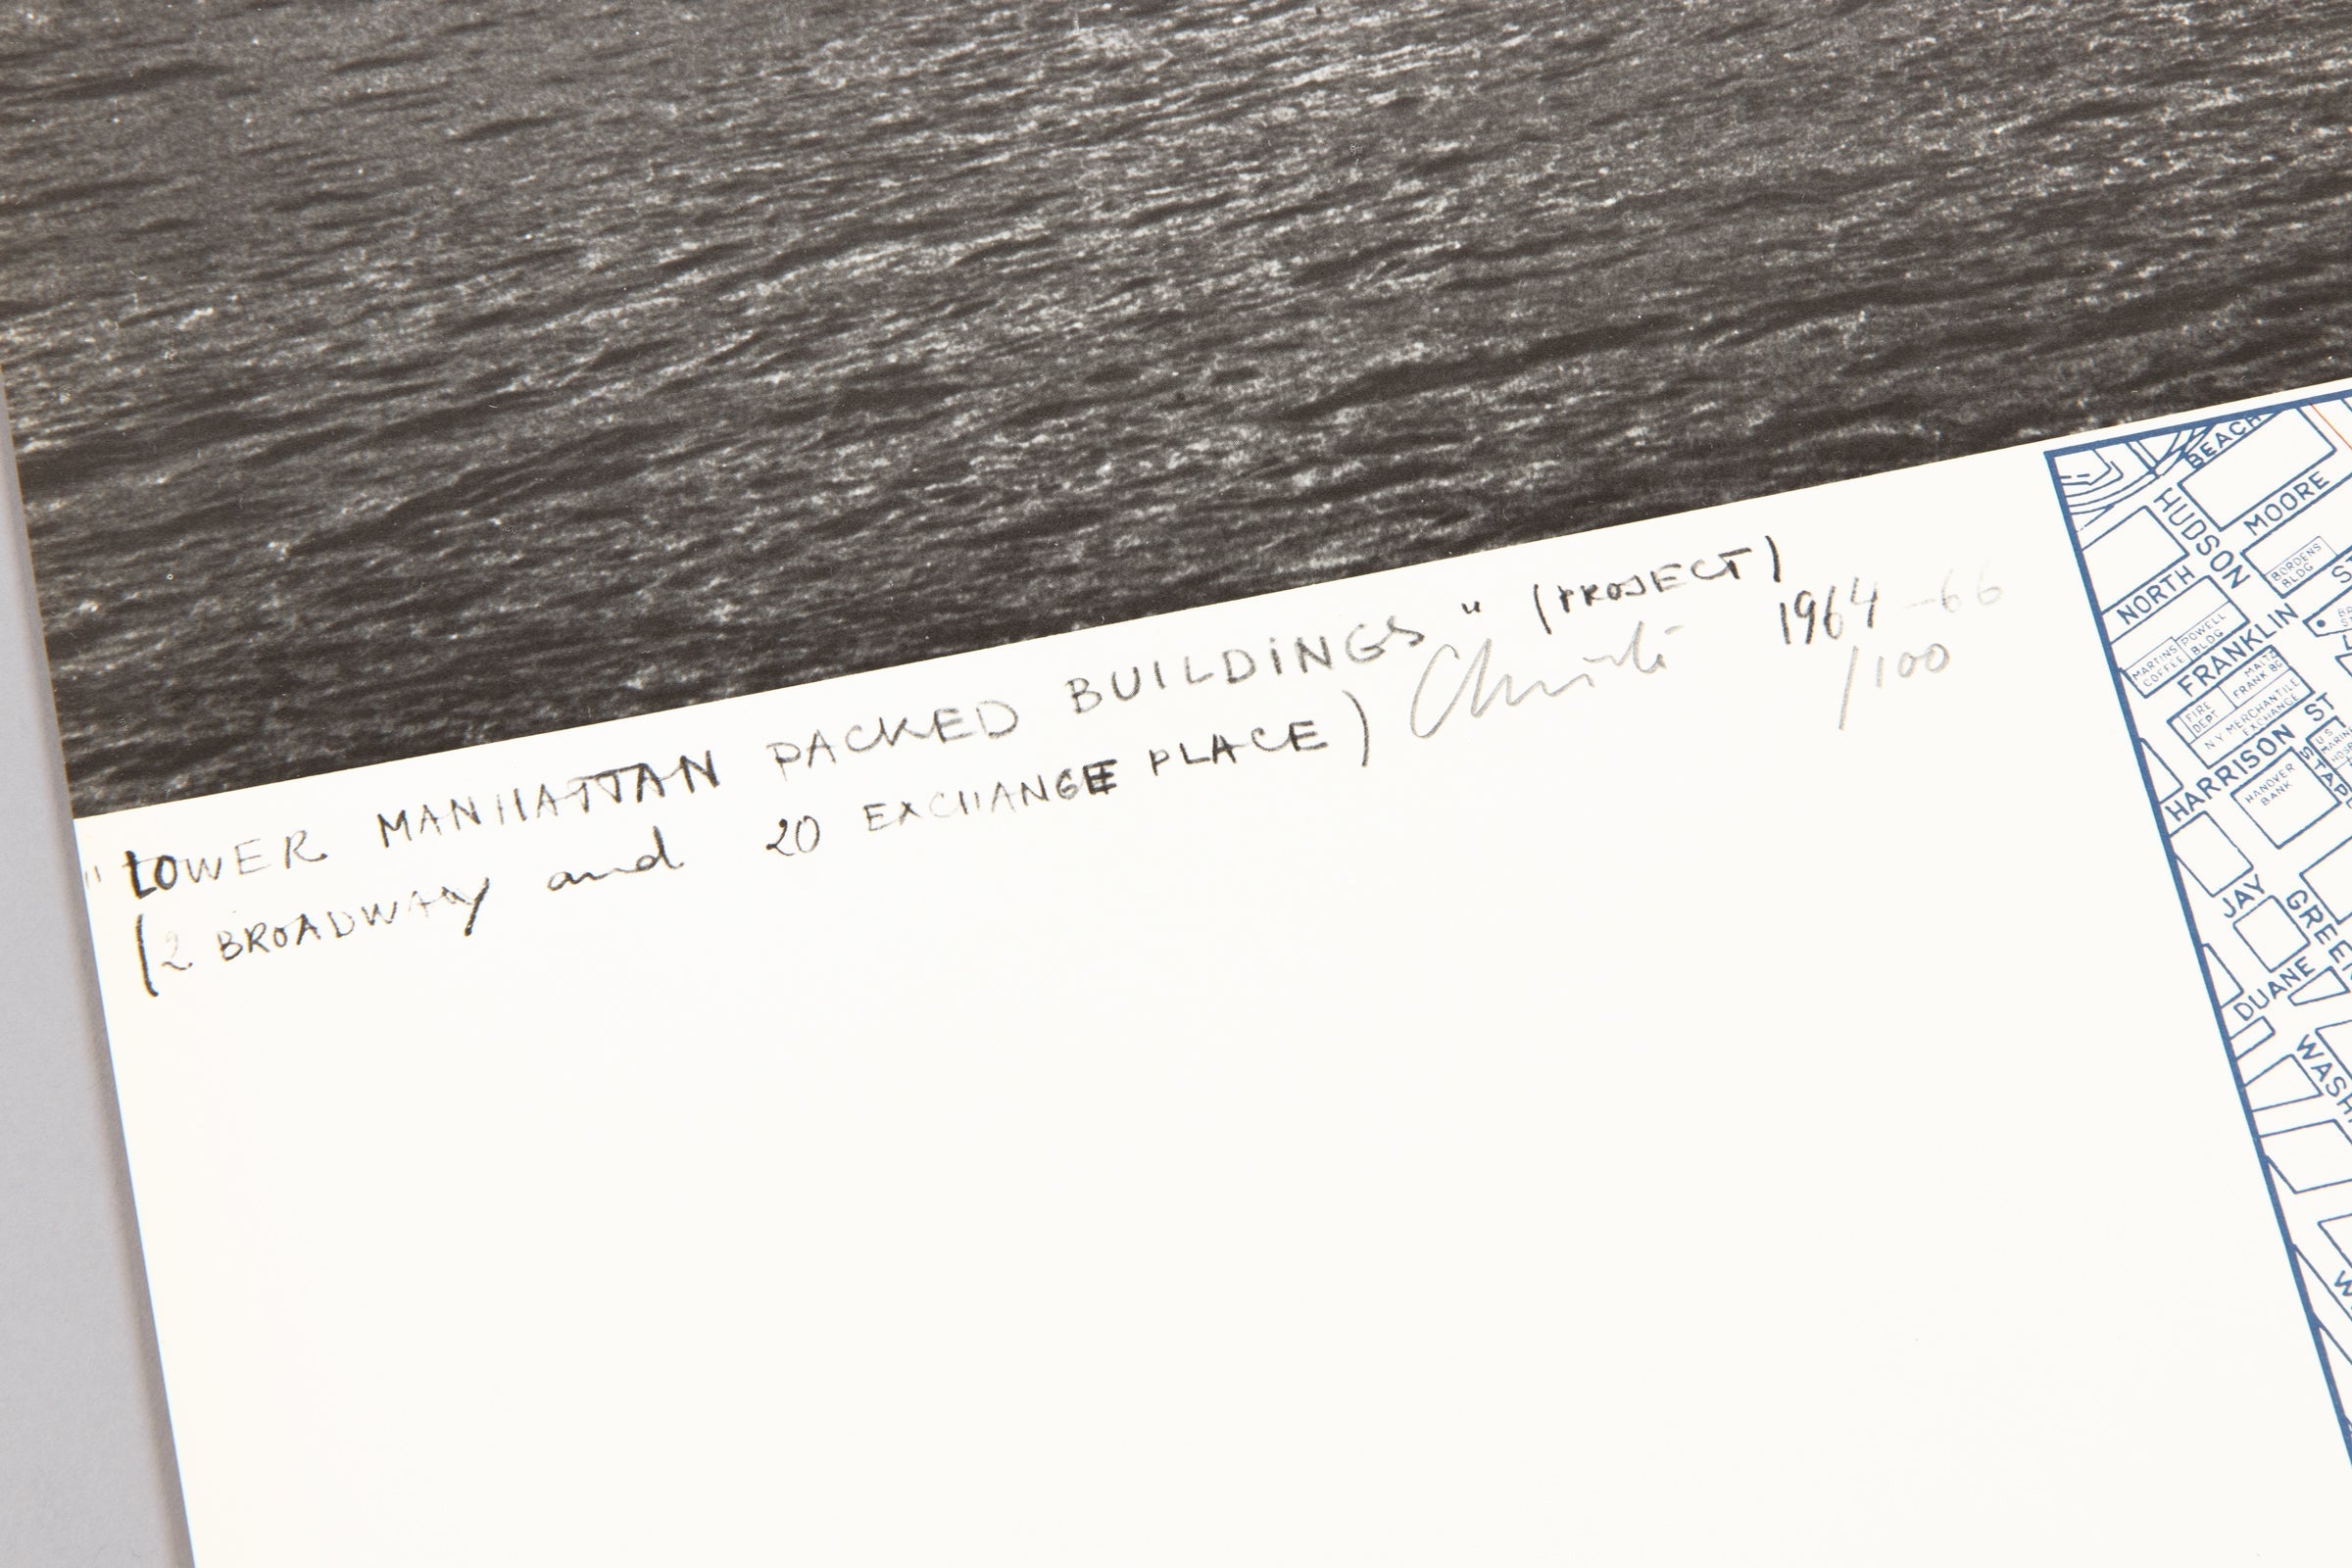 "LOWER MANHATTAN PACKED BUILDINGS" (PROJECT)
(2 BROADWAY and 20 EXCHANGE PLACE) Christo 1964-66
/100
BEACH
HUDSON
MOORE
BORDENS BLDG
NORTH
POWELL BLDG
MARTINS COFFEE
FRANKLIN
FIRE DEPT
FRANK
N Y MERCHANTILE EXCHANGE
ST
HARRISON
HANOVER BANK
JAY
DUANE